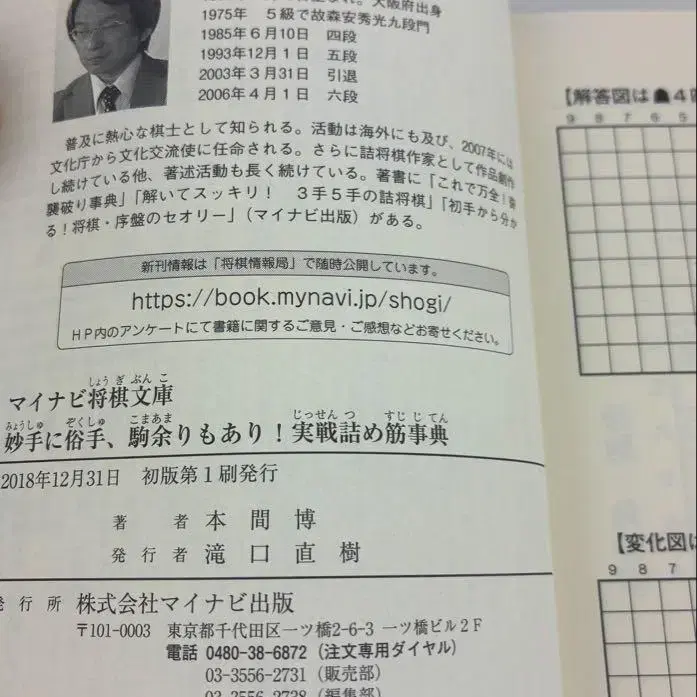 大阪府出身
1975年　5級で故森安秀光九段門
1985年6月10日　四段
1993年12月1日　五段
2003年3月31日　引退
2006年4月1日　六段
普及に熱心な棋士として知られる。活動は海外にも及び、2007年には
文化庁から文化交流使に任命される。さらに詰将棋作家として作品創作
し続けている他、著述活動も長く続けている。著書に「これで万全！奇
襲破り事典」「解いてスッキリ！　3手5手の詰将棋」「初手から分か
る！将棋・序盤のセオリー」（マイナビ出版）がある。
新刊情報は「将棋情報局」で随時公開しています。
https://book.mynavi.jp/shogi/
HP内のアンケートにて書籍に関するご意見・ご感想などお寄せください。
しょうぎぶんこ
マイナビ将棋文庫
みょうしゅ　ぞくしゅ　こまあま　じっせんつ　すじじてん
妙手に俗手、駒余りもあり！実戦詰め筋事典
2018年12月31日　初版第1刷発行
著　者　本間　博
発行者　滝口直樹
発行所　株式会社マイナビ出版
〒101-0003　東京都千代田区一ツ橋2-6-3　一ツ橋ビル2F
電話　0480-38-6872（注文専用ダイヤル）
03-3556-2731（販売部）
03-3556-2738（編集部）
【解答図は☗4
9 8 7 6 5
【変化図は
9 8 7